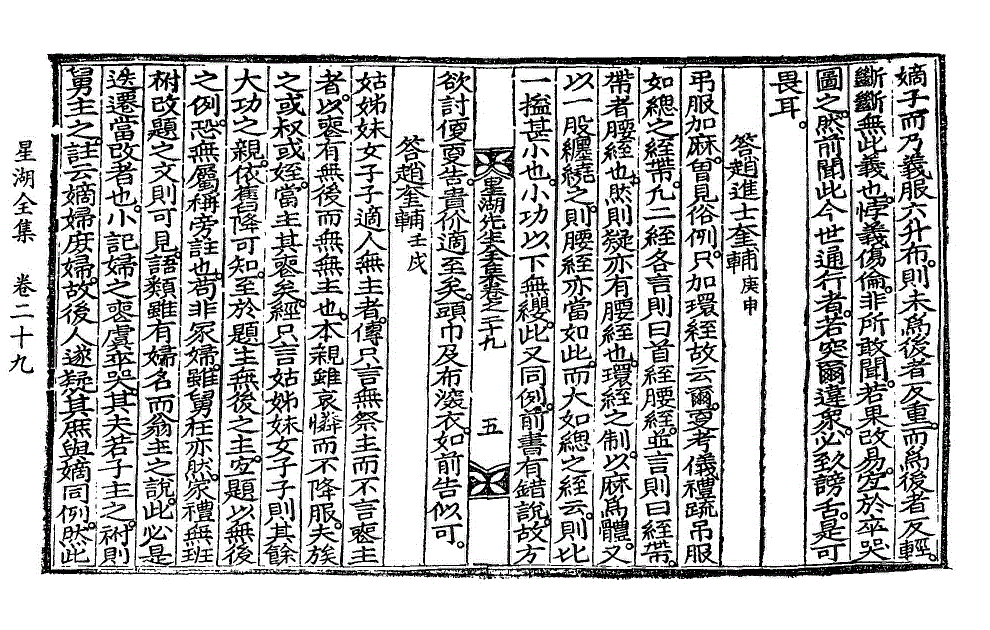 嫡子而乃義服六升布。則未爲後者反重。而爲後者反輕。
斷斷無此義也。悖義傷倫。非所敢聞。若果改易。宜於卒哭
圖之。然前聞此今世通行者。若突爾違衆。必致謗舌。是可
畏耳。
答趙進士奎輔 庚申
弔服加麻。曾見俗例。只加環絰故云爾。更考儀禮疏弔服
如緦之絰帶。凡二絰各言則曰首絰腰絰。並言則曰絰帶。
帶者腰絰也。然則疑亦有腰絰也。環絰之制。以麻爲體。又
以一股纏繞之。則腰絰亦當如此。而大如緦之絰云。則比
一搤甚小也。小功以下無纓。此又同例。前書有錯說。故方
星湖先生全集卷之二十九 五
欲討便更告。貴价適至矣。頭巾及布深衣。如前告似可。
答趙奎輔 壬戌
姑姊妹女子子適人無主者。傳只言無祭主而不言喪主
者。以喪有無後而無無主也。本親雖哀憐而不降服。夫族
之或叔或姪。當主其喪矣。經只言姑姊妹女子子則其餘
大功之親。依舊降可知。至於題主無後之主。宜題以無後
之例。恐無屬稱旁註也。苟非冢婦。雖舅在亦然。家禮無班
祔改題之文則可見。語類雖有婦名而翁主之說。此必是
迭遷當改者也。小記婦之喪虞卒哭。其夫若子主之。祔則
舅主之。註云嫡婦庶婦。故後人遂疑其庶與嫡同例。然此
星湖全集 卷二十九